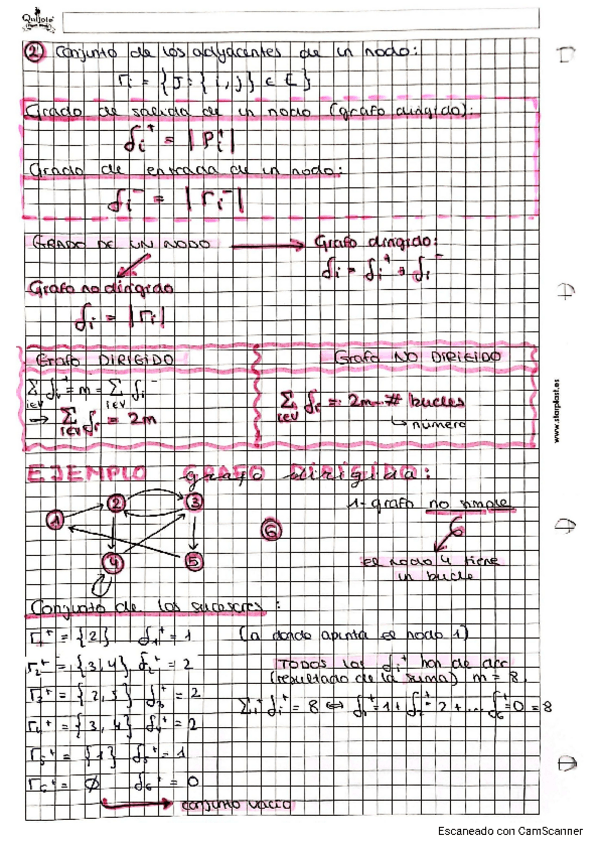 Quijote
② Conjunto de los adyacentes de un nodo:
Γi = {j: {i,j} ∈ E}
Grado de salida de un nodo (grafo dirigido):
δi⁺ = |Γi⁺|
Grado de entrada de un nodo:
δi⁻ = |Γi⁻|
GRADO DE UN NODO → Grafo dirigido:
δi = δi⁺ + δi⁻
Grafo no dirigido
δi = |Γi|
Grafo DIRIGIDO
Σ i∈V δi⁺ = m = Σ i∈V δi⁻
→ Σ i∈V δi = 2m
Grafo NO DIRIGIDO
Σ i∈V δi = 2m - # bucles
↳ numero
www.starplast.es
EJEMPLO grafo DIRIGIDO:
1 2 3 4 5 6
1-grafo no simple
El nodo 4 tiene
un bucle
Conjunto de los sucesores:
Γ1⁺ = {2} δ1⁺ = 1 (a donde apunta el nodo 1)
Γ2⁺ = {3,4} δ2⁺ = 2
TODOS los δi⁺ han de dar
(resultado de la suma) m = 8.
Γ3⁺ = {2,5} δ3⁺ = 2
Σi⁺ δi⁺ = 8 ⇔ δ1⁺ = 1 + δ2⁺ = 2 + ... δ6⁺ = 0 = 8
Γ4⁺ = {3,4} δ4⁺ = 2
Γ5⁺ = {1} δ5⁺ = 1
Γ6⁺ = ∅ δ6⁺ = 0
→ conjunto vacío
Escaneado con CamScanner